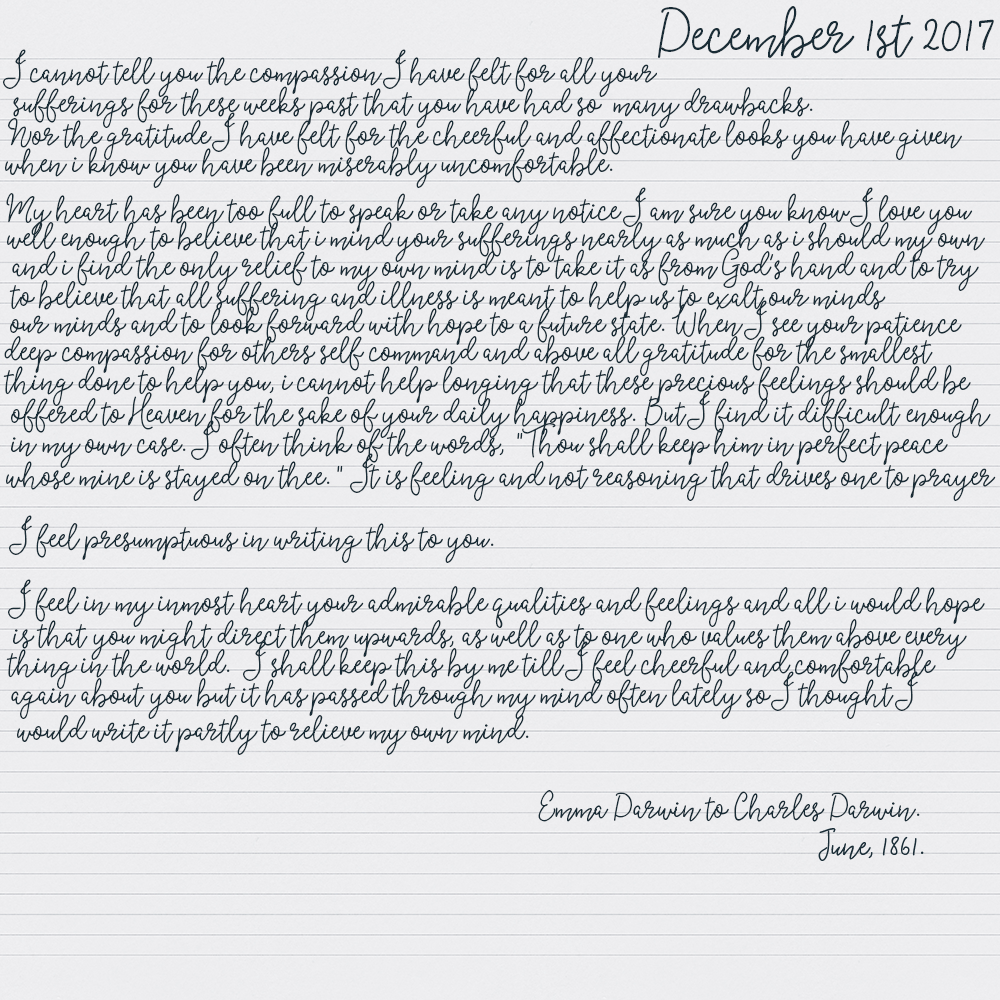 December 1st 2017
I cannot tell you the compassion I have felt for all your
sufferings for these weeks past that you have had so many drawbacks.
Nor the gratitude I have felt for the cheerful and affectionate looks you have given
when i know you have been miserably uncomfortable.
My heart has been too full to speak or take any notice I am sure you know I love you
well enough to believe that i mind your sufferings nearly as much as i should my own
and i find the only relief to my own mind is to take it as from God's hand and to try
to believe that all suffering and illness is meant to help us to exalt our minds
our minds and to look forward with hope to a future state. When I see your patience
deep compassion for others self command and above all gratitude for the smallest
thing done to help you, i cannot help longing that these precious feelings should be
offered to Heaven for the sake of your daily happiness. But I find it difficult enough
in my own case. I often think of the words, "Thou shall keep him in perfect peace
whose mine is stayed on thee." It is feeling and not reasoning that drives one to prayer
I feel presumptuous in writing this to you.
I feel in my inmost heart your admirable qualities and feelings and all i would hope
is that you might direct them upwards, as well as to one who values them above every
thing in the world. I shall keep this by me till I feel cheerful and comfortable
again about you but it has passed through my mind often lately so I thought I
would write it partly to relieve my own mind.
Emma Darwin to Charles Darwin.
June, 1861.